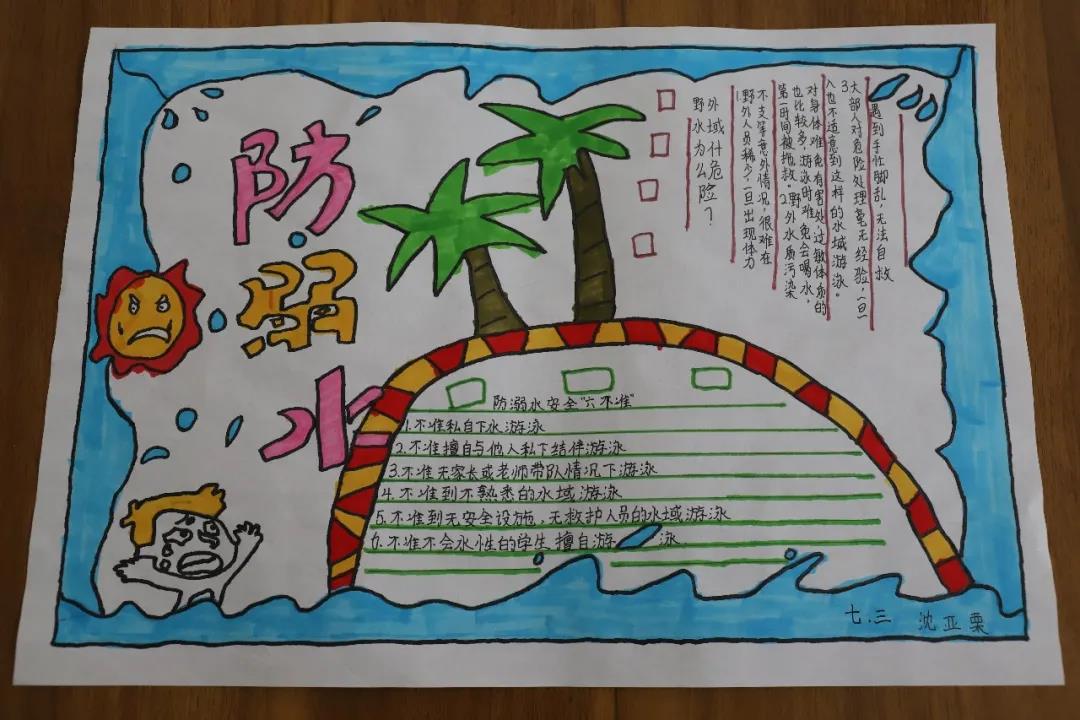 防溺水
野外水域为什么危险？
1.野外人员稀少，一旦出现体力
不支等意外情况，很难在
第一时间被拖救。2.野外水质污染
也比较多，游泳时难免会喝水，
对身体难免有害处，过敏体质的
人也不适意到这样的水域游泳。
3.大部人对危险处理毫无经验，一旦
遇到手忙脚乱，无法自救
防溺水安全“六不准”
1.不准私自下水游泳
2.不准擅自与他人私下结伴游泳
3.不准无家长或老师带队情况下游泳
4.不准到不熟悉的水域游泳
5.不准到无安全设施、无救护人员的水域游泳
6.不准不会水性的学生擅自游泳
七.三 沈亚栗